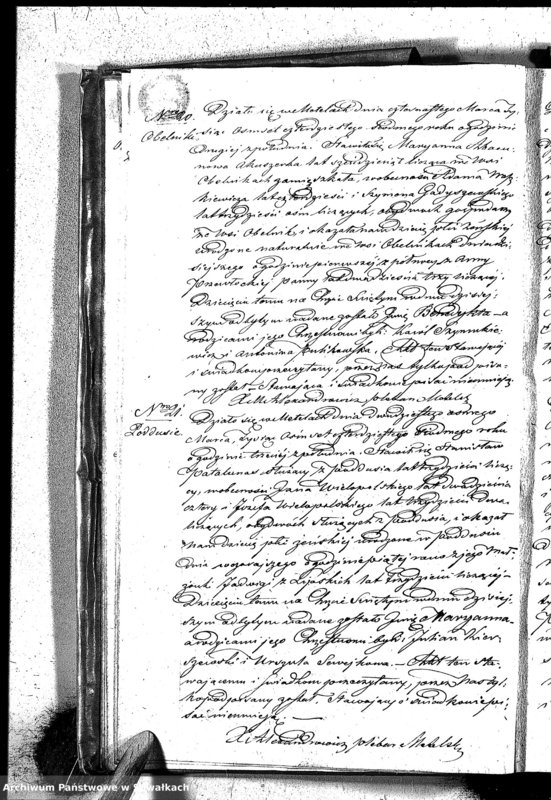 No 20. Działo się w Metelach dnia czternastego Marca Ty-
Obelniki siąc osmset czterdziestego siodmego roku o godzinie
drugiej z południa. Stawiła się Maryanna
nowa Akuszerka lat sześćdziesiąt licząca we wsi
Obelnikach zamieszkała, w obecności Adama
kiewicza lat czterdzieści i Szymona
lat trzydzieści osm liczących, obydwóch gospodarzy
ze wsi Obelnik i okazała nam dziecię płci żeńskiej
urodzone naturalnie we wsi Obelnikach dnia dzi-
siejszego o godzinie pierwszej z północy z Anny
Pawłockiej panny lat dwadzieścia trzy liczącej.
Dziecięciu temu na Chrzcie Świętym w dniu dzisiej-
szym odbytym nadane zostało Imię Benedykta — a
rodzicami jego Chrzestnemi byli: Karol Szymkie-
wicz i Antonina Rutkowska. Akt ten Stawającej
i świadkom przeczytany, przez nas tylko podpisa-
ny został. Stawająca i świadkowie pisać nieumieją.
X. Alexandrowicz pleban Metelsk
No 21. Działo się w Metelach dnia dwudziestego osmego
Poddusie. Marca, tysiąc osmset czterdziestego siodmego roku
o godzinie trzeciej z południa. Stawił się Stanisław
Patalunas służący z Poddusia lat trzydzieści liczą-
cy, w obecności Jana Wielopolskiego lat dwadzieścia
cztery i Józefa Wielopolskiego lat trzydzieści dwa
liczących, obydwóch służących z Poddusia, i okazał
nam dziecię płci żeńskiej urodzone w Poddusiu
dnia wczorajszego o godzinie piątej rano z jego Mał-
żonki Jadwigi z lat trzydzieści liczącej.
Dziecięciu temu na Chrzcie Świętym w dniu dzisiej-
szym odbytym nadane zostało Imię Maryanna
a rodzicami jego Chrzestnemi byli: Julian
i Urszula — Akt ten sta-
wającemu i świadkom przeczytany, przez nas tyl-
ko podpisany został. Stawający i świadkowie pi-
sać nieumieją.
X. Alexandrowicz pleban Metelsk
Archiwum Państwowe w Suwałkach